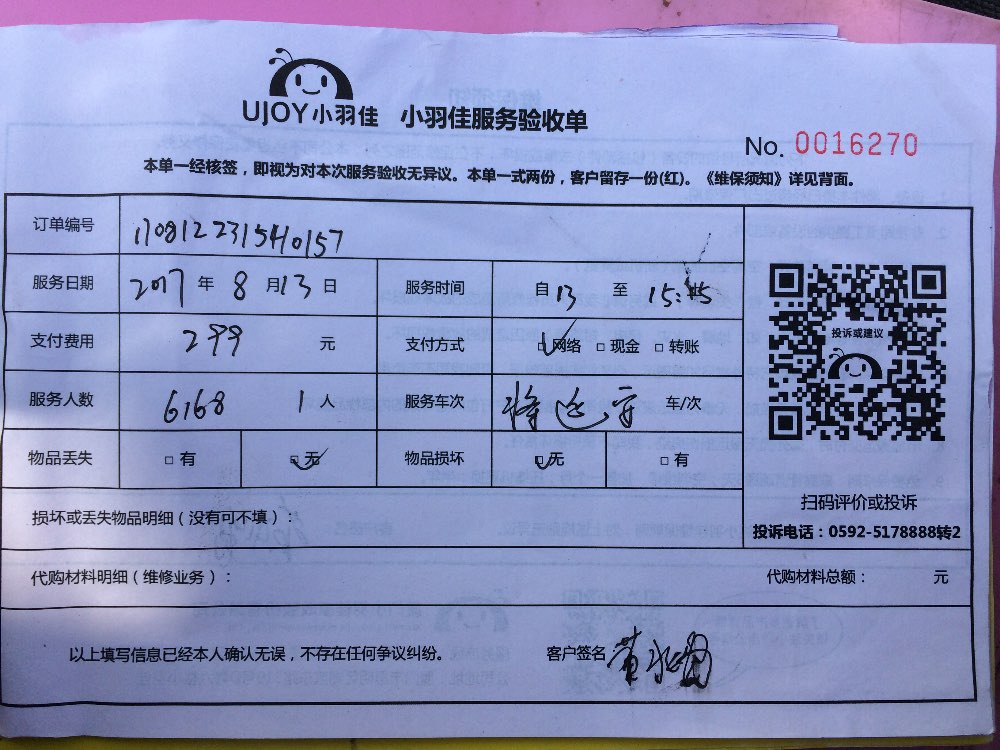 UJOY小羽佳 小羽佳服务验收单
No. 0016270
本单一经核签，即视为对本次服务验收无异议。本单一式两份，客户留存一份(红)。《维保须知》详见背面。
订单编号 170812231540157
服务日期 2017 年 8 月 13 日 服务时间 自 13 至 15:45
支付费用 299 元 支付方式 网络 现金 转账
投诉或建议
服务人数 6168 1 人 服务车次 车/次
物品丢失 有 无 物品损坏 无 有
扫码评价或投诉
损坏或丢失物品明细（没有可不填）：
投诉电话：0592-5178888转2
代购材料明细（维修业务）： 代购材料总额： 元
以上填写信息已经本人确认无误，不存在任何争议纠纷。 客户签名